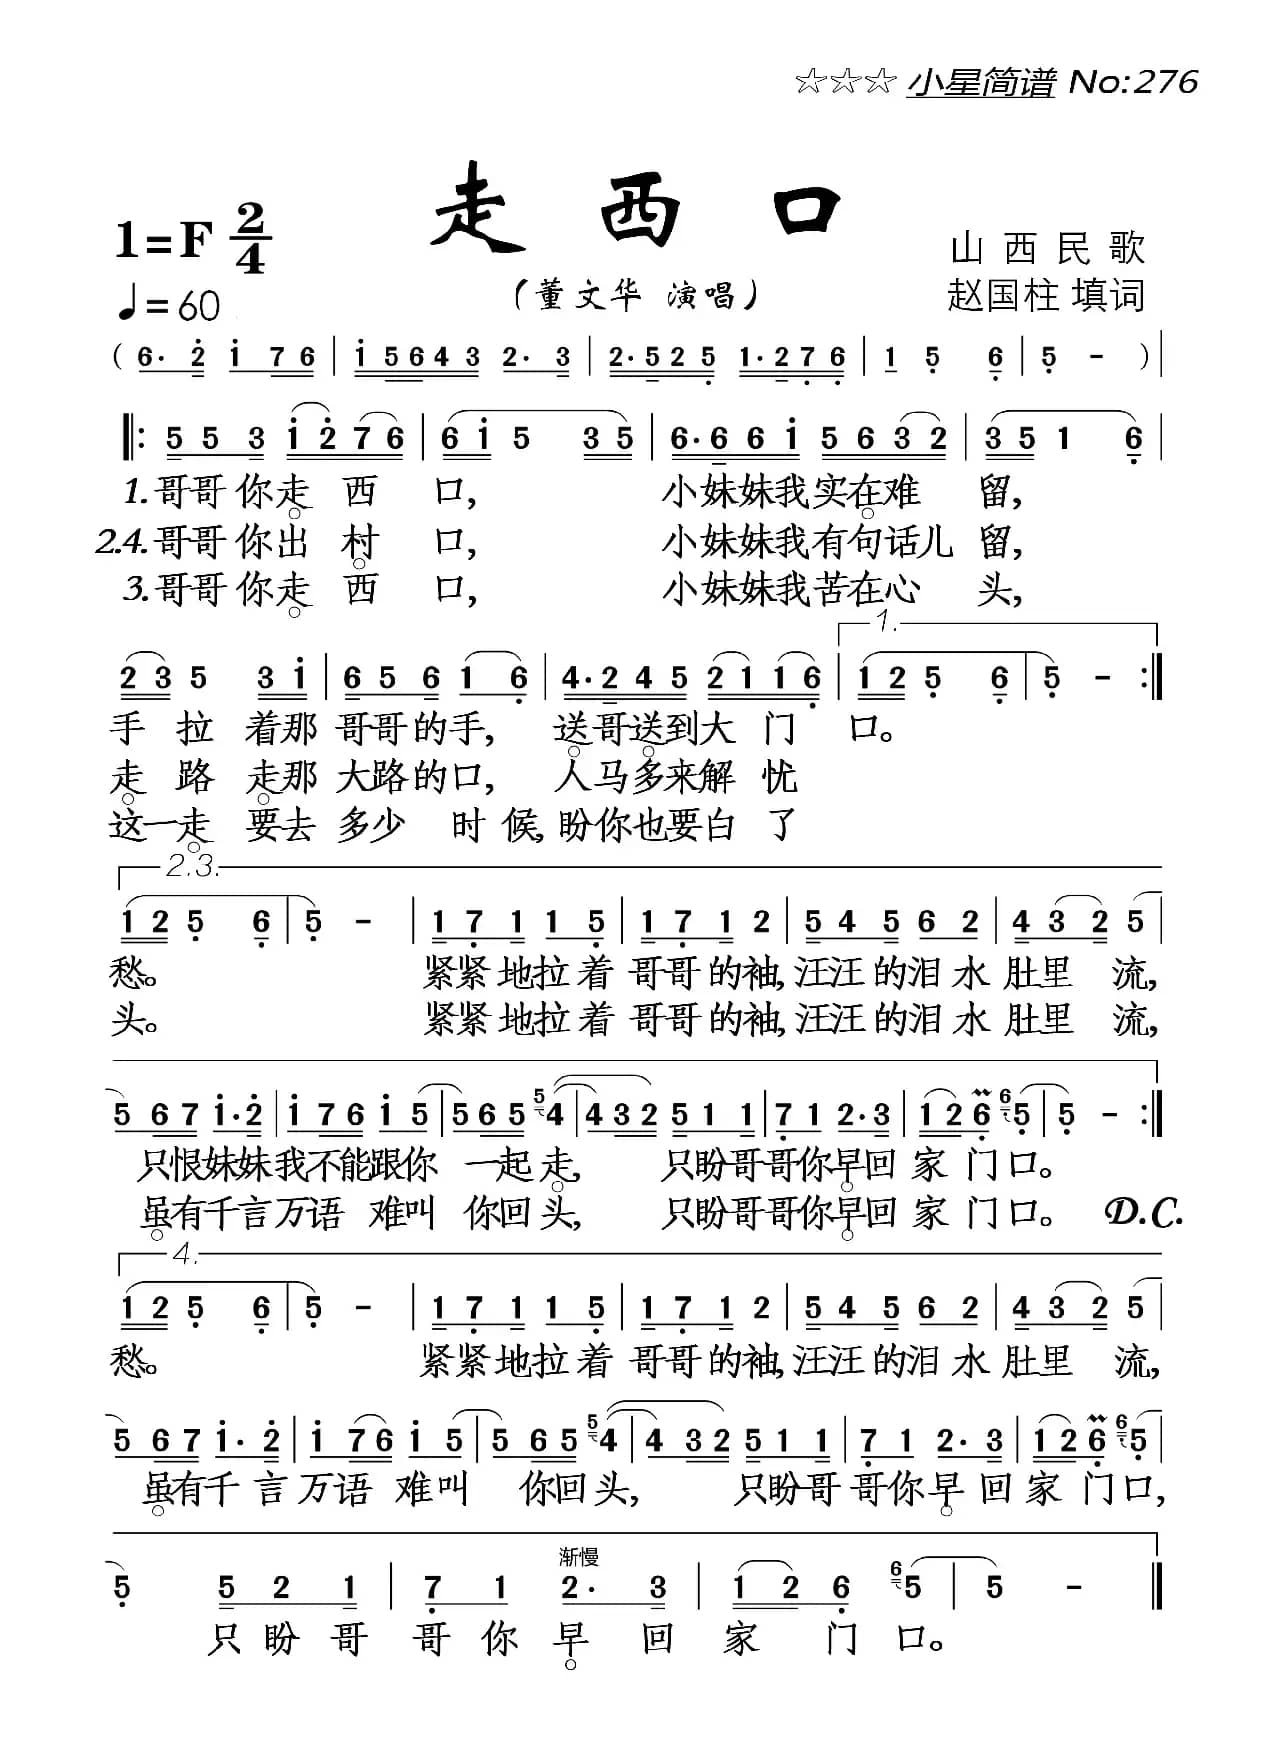 ☆☆☆ 小星简谱 No:276
走 西 口
1=F 2/4
山 西 民 歌
(董文华 演唱)
赵国柱 填词
♩=60
( 6· 2 1 7 6 | 1 5 6 4 3 2· 3 | 2·5 2 5 1·2 7 6 | 1 5 6 | 5 - ) |
‖: 5 5 3 1 2 7 6 | 6 1 5 3 5 | 6·6 6 1 5 6 3 2 | 3 5 1 6 |
1.哥哥你走 西 口, 小妹妹我实在难 留,
2.4.哥哥你出 村 口, 小妹妹我有句话儿 留,
3.哥哥你走 西 口, 小妹妹我苦在心 头,
1.
2 3 5 3 1 | 6 5 6 1 6 | 4·2 4 5 2 1 1 6 | 1 2 5 6 | 5 - :‖
手 拉 着那 哥哥的手, 送哥送到大 门 口。
走 路 走那 大路的口, 人马多来解 忧
这一走 要去 多少 时 候, 盼你也要白 了
2.3.
1 2 5 6 | 5 - | 1 7 1 1 5 | 1 7 1 2 | 5 4 5 6 2 | 4 3 2 5 |
愁。 紧紧地拉着 哥哥的袖,汪汪的泪水 肚里 流,
头。 紧紧地拉着 哥哥的袖,汪汪的泪水 肚里 流,
5 6 7 1·2 | 1 7 6 1 5 | 5 6 5 5 4 | 4 3 2 5 1 1 | 7 1 2·3 | 1 2 6 6 5 | 5 - :‖
只恨妹妹我不能跟你 一起走, 只盼哥哥你早回 家 门口。
虽有千言万语 难叫 你回头, 只盼哥哥你早回 家 门口。 D.C.
4.
1 2 5 6 | 5 - | 1 7 1 1 5 | 1 7 1 2 | 5 4 5 6 2 | 4 3 2 5 |
愁。 紧紧地拉着 哥哥的袖,汪汪的泪水 肚里 流,
5 6 7 1· 2 | 1 7 6 1 5 | 5 6 5 5 4 | 4 3 2 5 1 1 | 7 1 2· 3 | 1 2 6 6 5 |
虽有千言万语 难叫 你回头, 只盼哥哥你早 回家门口,
渐慢
5 5 2 1 | 7 1 2· 3 | 1 2 6 6 5 | 5 - ‖
只 盼 哥 哥 你 早 回 家 门 口。